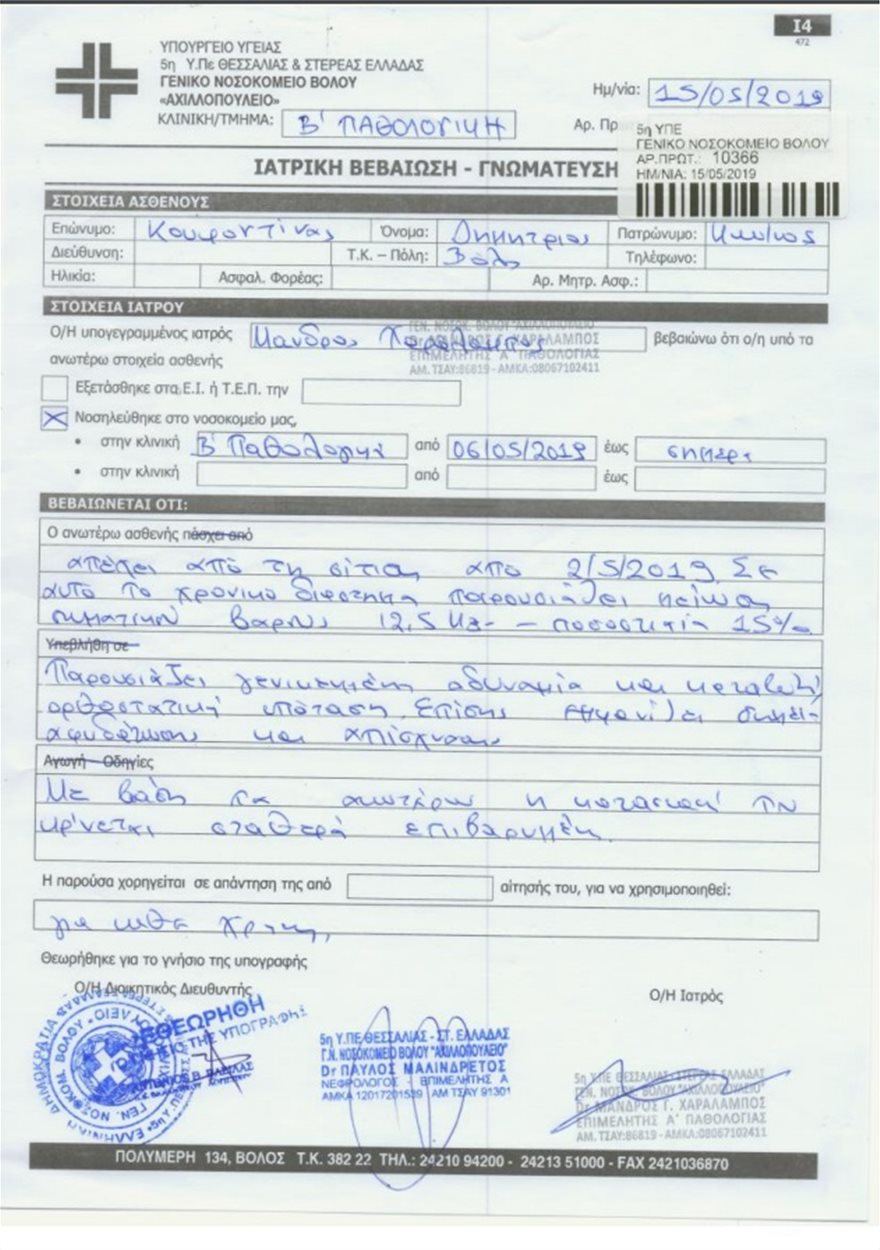 Ι4
472
ΥΠΟΥΡΓΕΙΟ ΥΓΕΙΑΣ
5η Υ.Πε ΘΕΣΣΑΛΙΑΣ & ΣΤΕΡΕΑΣ ΕΛΛΑΔΑΣ
ΓΕΝΙΚΟ ΝΟΣΟΚΟΜΕΙΟ ΒΟΛΟΥ
«ΑΧΙΛΛΟΠΟΥΛΕΙΟ»
ΚΛΙΝΙΚΗ/ΤΜΗΜΑ: Β' ΠΑΘΟΛΟΓΙΚΗ
Ημ/νία: 15/05/2019
Αρ. Πρ
5η ΥΠΕ
ΓΕΝΙΚΟ ΝΟΣΟΚΟΜΕΙΟ ΒΟΛΟΥ
ΑΡ.ΠΡΩΤ.: 10366
ΗΜ/ΝΙΑ: 15/05/2019
ΙΑΤΡΙΚΗ ΒΕΒΑΙΩΣΗ - ΓΝΩΜΑΤΕΥΣΗ
ΣΤΟΙΧΕΙΑ ΑΣΘΕΝΟΥΣ
Επώνυμο: Κουφοντίνας Όνομα: Δημητριος Πατρώνυμο:
Διεύθυνση: Τ.Κ. – Πόλη: Βόλος Τηλέφωνο:
Ηλικία: Ασφαλ. Φορέας: Αρ. Μητρ. Ασφ.:
ΣΤΟΙΧΕΙΑ ΙΑΤΡΟΥ
Ο/Η υπογεγραμμένος ιατρός Μανδρος Χαραλαμπος βεβαιώνω ότι ο/η υπό τα
ΓΕΝ. ΝΟΣΟΚ. ΒΟΛΟΥ "ΑΧΙΛΛΟΠΟΥΛΕΙΟ"
ΧΑΡΑΛΑΜΠΟΣ
ΕΠΙΜΕΛΗΤΗΣ Α' ΠΑΘΟΛΟΓΙΑΣ
ΑΜ.ΤΣΑΥ:86819 - ΑΜΚΑ:08067102411
ανωτέρω στοιχεία ασθενής
Εξετάσθηκε στα Ε.Ι. ή Τ.Ε.Π. την
Νοσηλεύθηκε στο νοσοκομείο μας,
• στην κλινική Β' Παθολογική από 06/05/2019 έως σημερα
• στην κλινική από έως
ΒΕΒΑΙΩΝΕΤΑΙ ΟΤΙ:
Ο ανωτέρω ασθενής πάσχει από
απέχει από τη σίτιση από 2/5/2019. Σε
αυτό το χρονικο διαστημα παρουσιάζει μείωση
σωματικού βαρους 12,5 Kg - ποσοστιαία 15%.
Υπεβλήθη σε
Παρουσιάζει γενικευμένη αδυναμία και
ορθοστατική υπόταση. Επίσης εμφανίζει σημεία
αφυδάτωσης και απίσχνασης
Αγωγή – Οδηγίες
Με βάση τα ανωτέρω η κατάσταση του
κρίνεται σταθερά επιβαρυμένη.
Η παρούσα χορηγείται σε απάντηση της από αίτησής του, για να χρησιμοποιηθεί:
για καθε χρηση,
Θεωρήθηκε για το γνήσιο της υπογραφής
Ο/Η Διοικητικός Διευθυντής
Ο/Η Ιατρός
ΕΘΕΩΡΗΘΗ
ΤΗΣ ΥΠΟΓΡΑΦΗΣ
5η Υ.ΠΕ ΘΕΣΣΑΛΙΑΣ - ΣΤ. ΕΛΛΑΔΑΣ
Γ.Ν. ΝΟΣΟΚΟΜΕΙΟ ΒΟΛΟΥ "ΑΧΙΛΛΟΠΟΥΛΕΙΟ"
Dr ΠΑΥΛΟΣ ΜΑΛΙΝΔΡΕΤΟΣ
ΝΕΦΡΟΛΟΓΟΣ - ΕΠΙΜΕΛΗΤΗΣ Α
ΑΜΚΑ 12017201539 - ΑΜ ΤΣΑΥ 91301
5η Υ.ΠΕ ΘΕΣΣΑΛΙΑΣ - ΣΤΕΡΕΑΣ ΕΛΛΑΔΑΣ
ΓΕΝ. ΝΟΣΟΚ. ΒΟΛΟΥ "ΑΧΙΛΛΟΠΟΥΛΕΙΟ"
Dr ΜΑΝΔΡΟΣ Γ. ΧΑΡΑΛΑΜΠΟΣ
ΕΠΙΜΕΛΗΤΗΣ Α' ΠΑΘΟΛΟΓΙΑΣ
ΑΜ.ΤΣΑΥ:86819 - ΑΜΚΑ:08067102411
ΠΟΛΥΜΕΡΗ 134, ΒΟΛΟΣ Τ.Κ. 382 22 ΤΗΛ.: 24210 94200 - 24213 51000 - FAX 2421036870